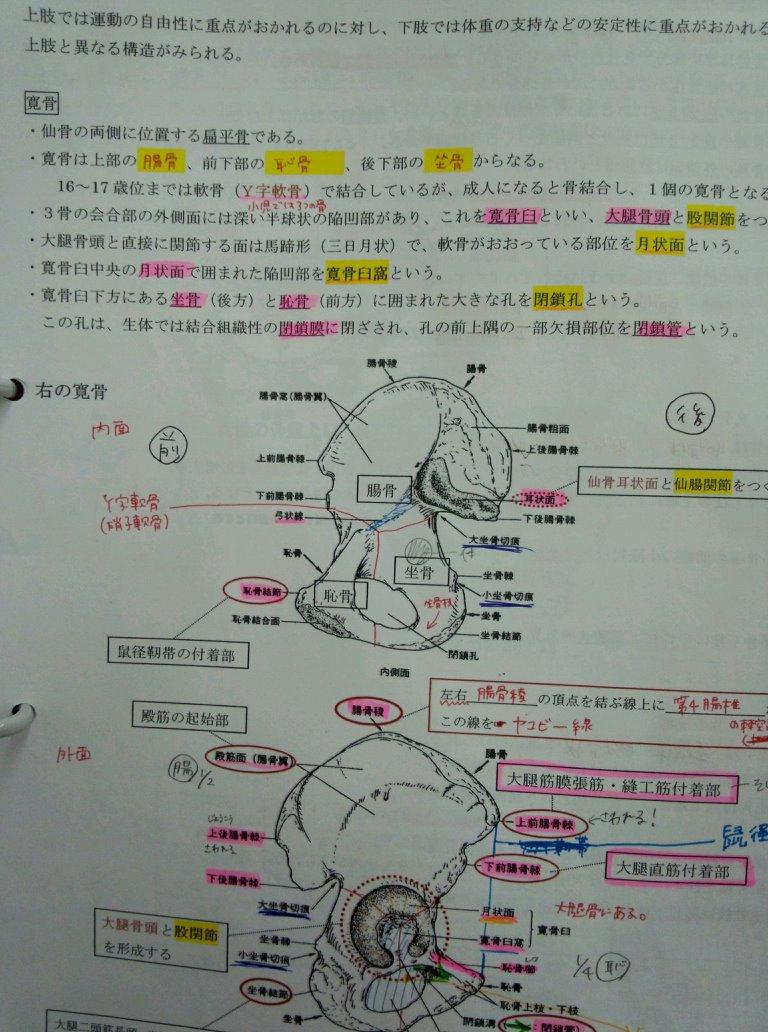 上肢では運動の自由性に重点がおかれるのに対し、下肢では体重の支持などの安定性に重点がおかれる
上肢と異なる構造がみられる。
寛骨
・仙骨の両側に位置する扁平骨である。
・寛骨は上部の 腸骨 、前下部の 恥骨 、後下部の 坐骨 からなる。
16～17歳位までは軟骨（Y字軟骨）で結合しているが、成人になると骨結合し、1個の寛骨となる
小児では3つの骨
・3骨の会合部の外側面には深い半球状の陥凹部があり、これを寛骨臼といい、大腿骨頭と股関節をつ
・大腿骨頭と直接に関節する面は馬蹄形（三日月状）で、軟骨がおおっている部位を月状面という。
・寛骨臼中央の月状面で囲まれた陥凹部を寛骨臼窩という。
・寛骨臼下方にある坐骨（後方）と恥骨（前方）に囲まれた大きな孔を閉鎖孔という。
この孔は、生体では結合組織性の閉鎖膜に閉ざされ、孔の前上隅の一部欠損部位を閉鎖管という。
右の寛骨
腸骨稜
腸骨
腸骨窩（腸骨翼）
後
内面
前
腸骨粗面
上後腸骨棘
上前腸骨棘
腸骨
仙骨耳状面と仙腸関節をつく
下前腸骨棘
耳状面
Y字軟骨
(硝子軟骨)
弓状線
下後腸骨棘
大坐骨切痕
恥骨
坐骨
坐骨棘
恥骨結節
恥骨
小坐骨切痕
坐骨枝
坐骨
恥骨結合面
坐骨結節
鼠径靭帯の付着部
閉鎖孔
内側面
左右 腸骨稜 の頂点を結ぶ線上に 第4腰椎
の棘突
この線を ヤコビー線
殿筋の起始部
腸骨稜
外面
殿筋面（腸骨翼）
腸 1/2
腸骨
大腿筋膜張筋・縫工筋付着部
じょうこう
上後腸骨棘
さわれる
上前腸骨棘
さわれる！
鼠径
下後腸骨棘
下前腸骨棘
大腿直筋付着部
大坐骨切痕
月状面
大腿骨にある。
寛骨臼
大腿骨頭と股関節
を形成する
坐骨棘
寛骨臼窩
小坐骨切痕
恥骨櫛
1/4 恥
恥骨
坐骨結節
恥骨上枝・下枝
閉鎖溝
閉鎖管
坐骨